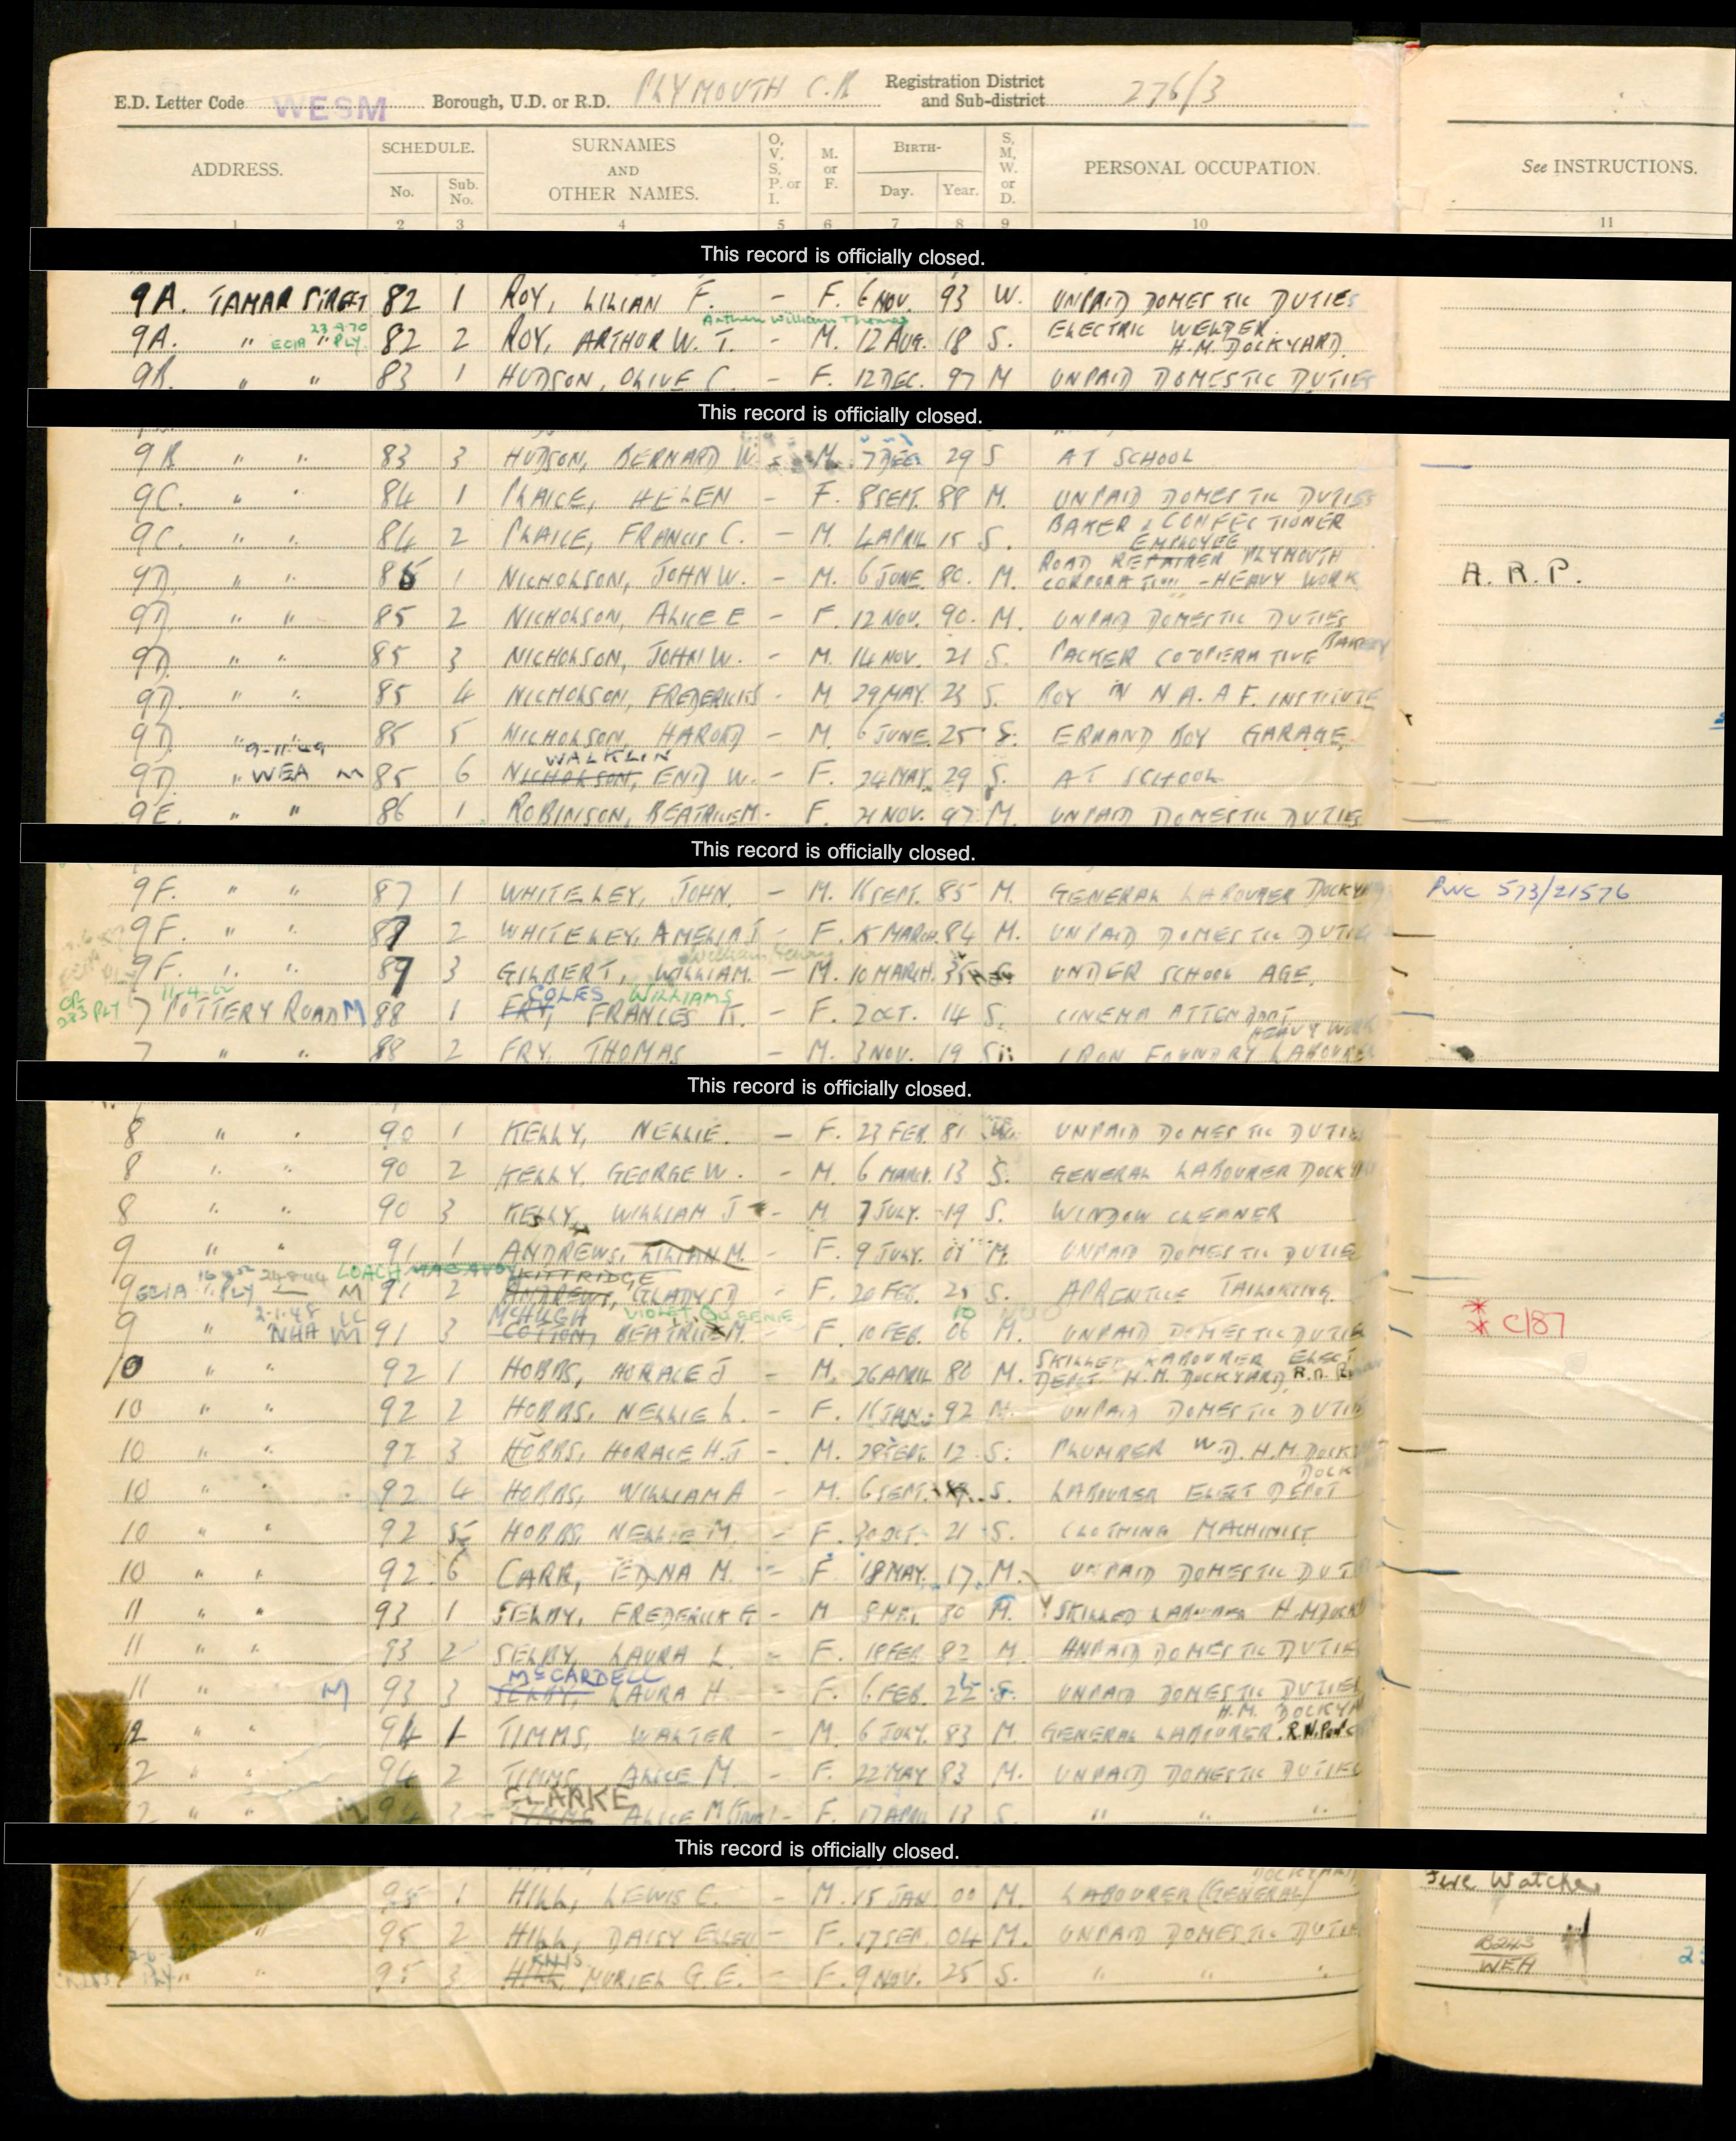 E.D. Letter Code WESM Borough, U.D. or R.D. PLYMOUTH C.B. Registration District and Sub-district 276/3
ADDRESS. SCHEDULE. No. Sub. No. SURNAMES AND OTHER NAMES. O, V, S, P. or I. M. or F. BIRTH- Day. Year. S, M, W. or D. PERSONAL OCCUPATION. See INSTRUCTIONS.
1 2 3 4 5 6 7 8 9 10 11
This record is officially closed.
9A. TAMAR STREET 82 1 ROY, LILIAN F. - F. 6 NOV. 93 W. UNPAID DOMESTIC DUTIES
Arthur William Thomas
9A. " 23-9-70 ECIA " PLY. 82 2 ROY, ARTHUR W. T. - M. 12 AUG. 18 S. ELECTRIC WELDER. H.M. DOCKYARD.
9B. " " 83 1 HUDSON, OLIVE C. - F. 12 DEC. 97 M UNPAID DOMESTIC DUTIES
This record is officially closed.
9B " " 83 3 HUDSON, BERNARD W. - M. 7 DEC. 29 S AT SCHOOL
9C. " " 84 1 PLAICE, HELEN - F. 8 SEPT. 88 M. UNPAID DOMESTIC DUTIES
9C. " " 84 2 PLAICE, FRANCIS C. - M. 4 APRIL 15 S. BAKER & CONFECTIONER EMPLOYEE
9D. " " 85 1 NICHOLSON, JOHN W. - M. 6 JUNE. 80. M. ROAD REPAIRER PLYMOUTH CORPORATION - HEAVY WORK A. R. P.
9D. " " 85 2 NICHOLSON, ALICE E - F. 12 NOV. 90. M. UNPAID DOMESTIC DUTIES
9D. " " 85 3 NICHOLSON, JOHN W. - M. 14 NOV. 21 S. PACKER COOPERATIVE BAKERY
9D. " " 85 4 NICHOLSON, FREDERICK S - M. 29 MAY. 23 S. BOY IN N.A.A.F. INSTITUTE
9D. " " 85 5 NICHOLSON, HAROLD - M. 6 JUNE. 25 S. ERRAND BOY GARAGE.
9-11-49 WALKLIN
9D. " WEA M 85 6 NICHOLSON, ENID W. - F. 24 MAY. 29 S. AT SCHOOL
9E. " " 86 1 ROBINSON, BEATRICE M - F. 21 NOV. 97 M. UNPAID DOMESTIC DUTIES
This record is officially closed.
9F. " " 87 1 WHITELEY, JOHN. - M. 16 SEPT. 85 M. GENERAL LABOURER DOCKYARD RNC 573/21576
9F. " " 87 2 WHITELEY, AMELIA J - F. 15 MARCH. 84 M. UNPAID DOMESTIC DUTIES
9F. " " 87 3 GILBERT, WILLIAM. - M. 10 MARCH. 35 S. UNDER SCHOOL AGE.
COLES WILLIAMS
7 POTTERY ROAD M 88 1 FRY, FRANCES K. - F. 2 OCT. 14 S. CINEMA ATTENDANT
7 " " 88 2 FRY, THOMAS - M. 3 NOV. 19 S. IRON FOUNDRY LABOURER HEAVY WORK
This record is officially closed.
8 " " 90 1 KELLY, NELLIE. - F. 23 FEB. 81 W. UNPAID DOMESTIC DUTIES
8 " " 90 2 KELLY, GEORGE W. - M. 6 MARCH. 13 S. GENERAL LABOURER DOCKYARD
8 " " 90 3 KELLY, WILLIAM J - M. 7 JULY. 19 S. WINDOW CLEANER
9 " " 91 1 ANDREWS, LILIAN M. - F. 9 JULY. 01 M. UNPAID DOMESTIC DUTIES
LOACH MACAVOY KITTRIDGE
9 ECIA PLY M 91 2 ANDREWS, GLADYS D - F. 20 FEB. 25 S. APRENTICE TAILORING.
2-1-48 LC MCHUGH VIOLET EUGENIE 10
9 " NHA M 91 3 COTTON, BEATRICE M. - F. 10 FEB. 06 M. UNPAID DOMESTIC DUTIES C/87
10 " " 92 1 HOBBS, HORACE J - M. 26 APRIL 80 M. SKILLED LABOURER ELECT DEPT H.M. DOCKYARD.
10 " " 92 2 HOBBS, NELLIE L. - F. 16 JAN. 92 M. UNPAID DOMESTIC DUTIES
10 " " 92 3 HOBBS, HORACE H.J - M. 28 SEPT. 12 S. PLUMBER W.D. H.M. DOCKYARD
10 " " 92 4 HOBBS, WILLIAM A - M. 6 SEPT. S. LABOURER ELECT DEPOT DOCK
10 " " 92 5 HOBBS, NELLIE M. - F. 30 OCT. 21 S. CLOTHING MACHINIST
10 " " 92 6 CARR, EDNA M. - F. 18 MAY. 17 M. UNPAID DOMESTIC DUT
11 " " 93 1 SELBY, FREDERICK G - M 80 M. SKILLED LABOURER H.M DOCK
11 " " 93 2 SELBY, LAURA L. - F. 18 FEB. 82 M. UNPAID DOMESTIC DUTIES
McCARDELL
11 " M 93 3 SELBY, LAURA H. - F. 6 FEB. 22 S. UNPAID DOMESTIC DUTIES
12 " " 94 1 TIMMS, WALTER - M. 6 JULY. 83 M. GENERAL LABOURER. H.M. DOCKYA
2 " " 94 2 TIMMS, ALICE M. - F. 22 MAY 83 M. UNPAID DOMESTIC DUTIES
CLARKE
2 " " M 94 3 TIMMS, ALICE M - F. 17 APRIL 13 S. " " "
This record is officially closed.
95 1 HILL, LEWIS C. - M. 15 JAN 00 M. LABOURER (GENERAL) DOCKYARD Fire Watcher
" 95 2 HILL, DAISY ELLEN - F. 17 SEP. 04 M. UNPAID DOMESTIC DUTIES
" " 95 3 HILL, MURIEL G. E. - F. 9 NOV. 25 S. " " " B243 WEH